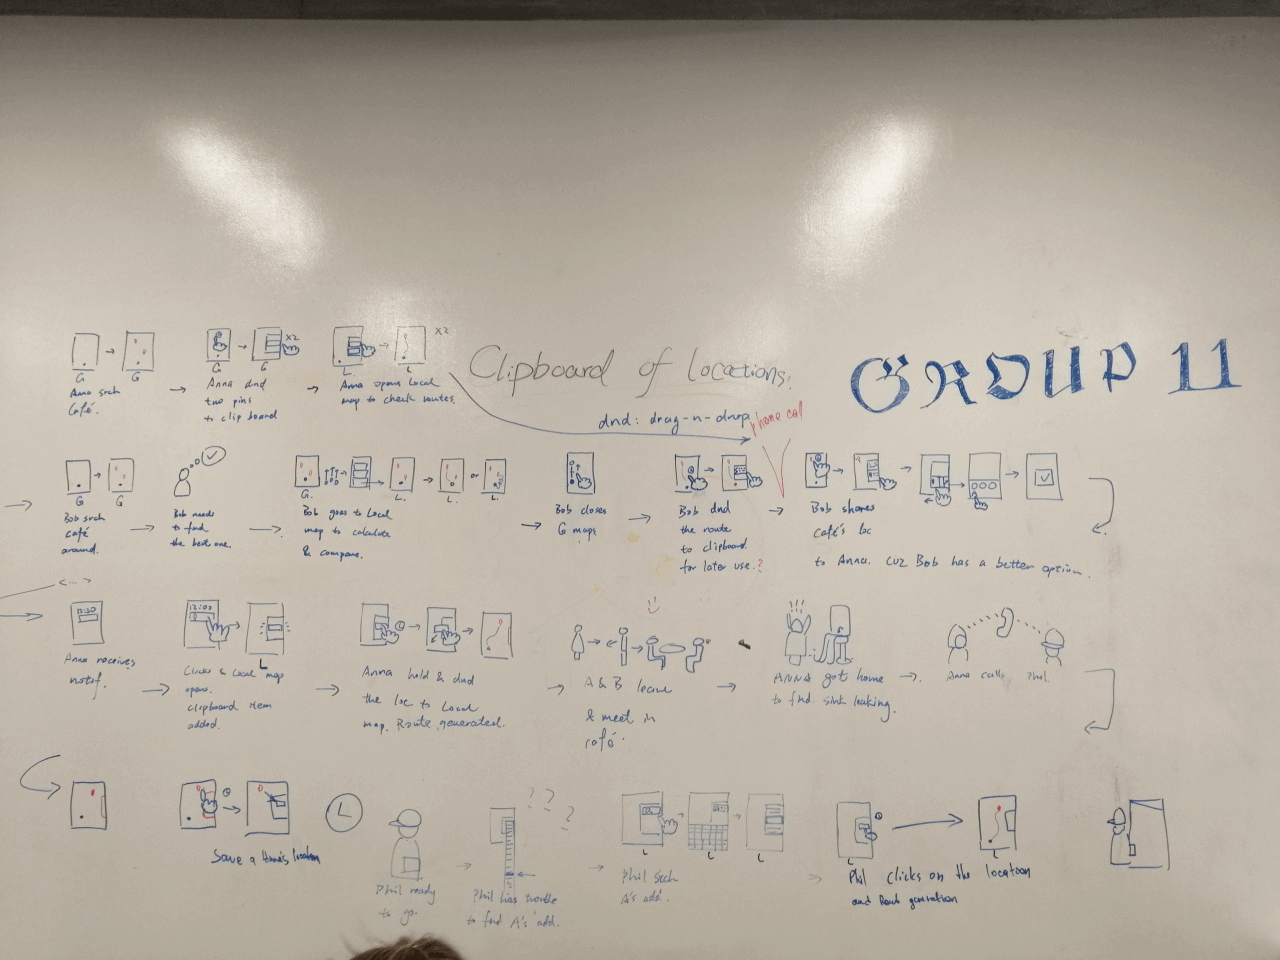 Clipboard of locations.
GROUP 11
dnd: drag-n-drop
phone call
G
G
Anna srch
Café.
X2
G
G
Anna dnd
two pins
to clip board
X2
L
L
Anna opens Local
map to check routes.
G
G
Bob srch
café
around.
Bob needs
to find
the best one.
or
G.
L.
L.
L.
Bob goes to Local
map to calculate
& compare.
Bob closes
G maps.
Bob dnd
the route
to clipboard
for later use.?
Bob shares
café's loc
to Anna. cuz Bob has a better option.
<...>
12:30
Anna receives
notif.
12:00
L
Clicks & Local map
opens.
Clipboard item
added.
Anna hold & dnd
the loc to Local
map. Route generated.
A & B leave
& meet in
café.
ANNA got home
to find sink leaking.
Anna calls Phil.
Save Anna's location
Phil ready
to go.
? ? ?
Phil has trouble
to find A's add.
L
L
L
Phil srch
A's add.
L
L
Phil clicks on the location
and Route generation